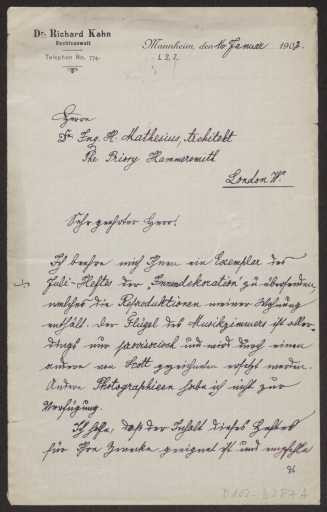 Dr. Richard Kahn
Rechtsanwalt
Telephon No. 774.
Mannheim, den 16. Januar 1903.
L 2, 2.
Herrn
Dr. Ing. H. Mathesius, Architekt
The Priory Hammersmith
London W.
Sehr geehrter Herr!
Ich beehre mich Ihnen ein Exemplar des
Juli-Heftes der „Innendekoration“ zu übersenden,
welches die Reproduktionen meiner Wohnung
enthält. Der Flügel des Musikzimmers ist aller-
dings nur provisorisch und wird durch einen
andern von Scott gezeichneten ersetzt werden.
Andere Photographieen habe ich nicht zur
Verfügung.
Ich hoffe, daß der Inhalt dieses Heftes
für Ihre Zwecke geeignet ist und empfehle
D 102-